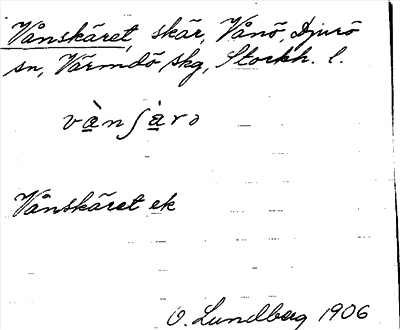 Vånskäret, skär, Vånö, Djurö
sn, Värmdö skg, Stockh. l.
và̲nʃà̲rə
Vånskäret ek
O. Lundberg 1906